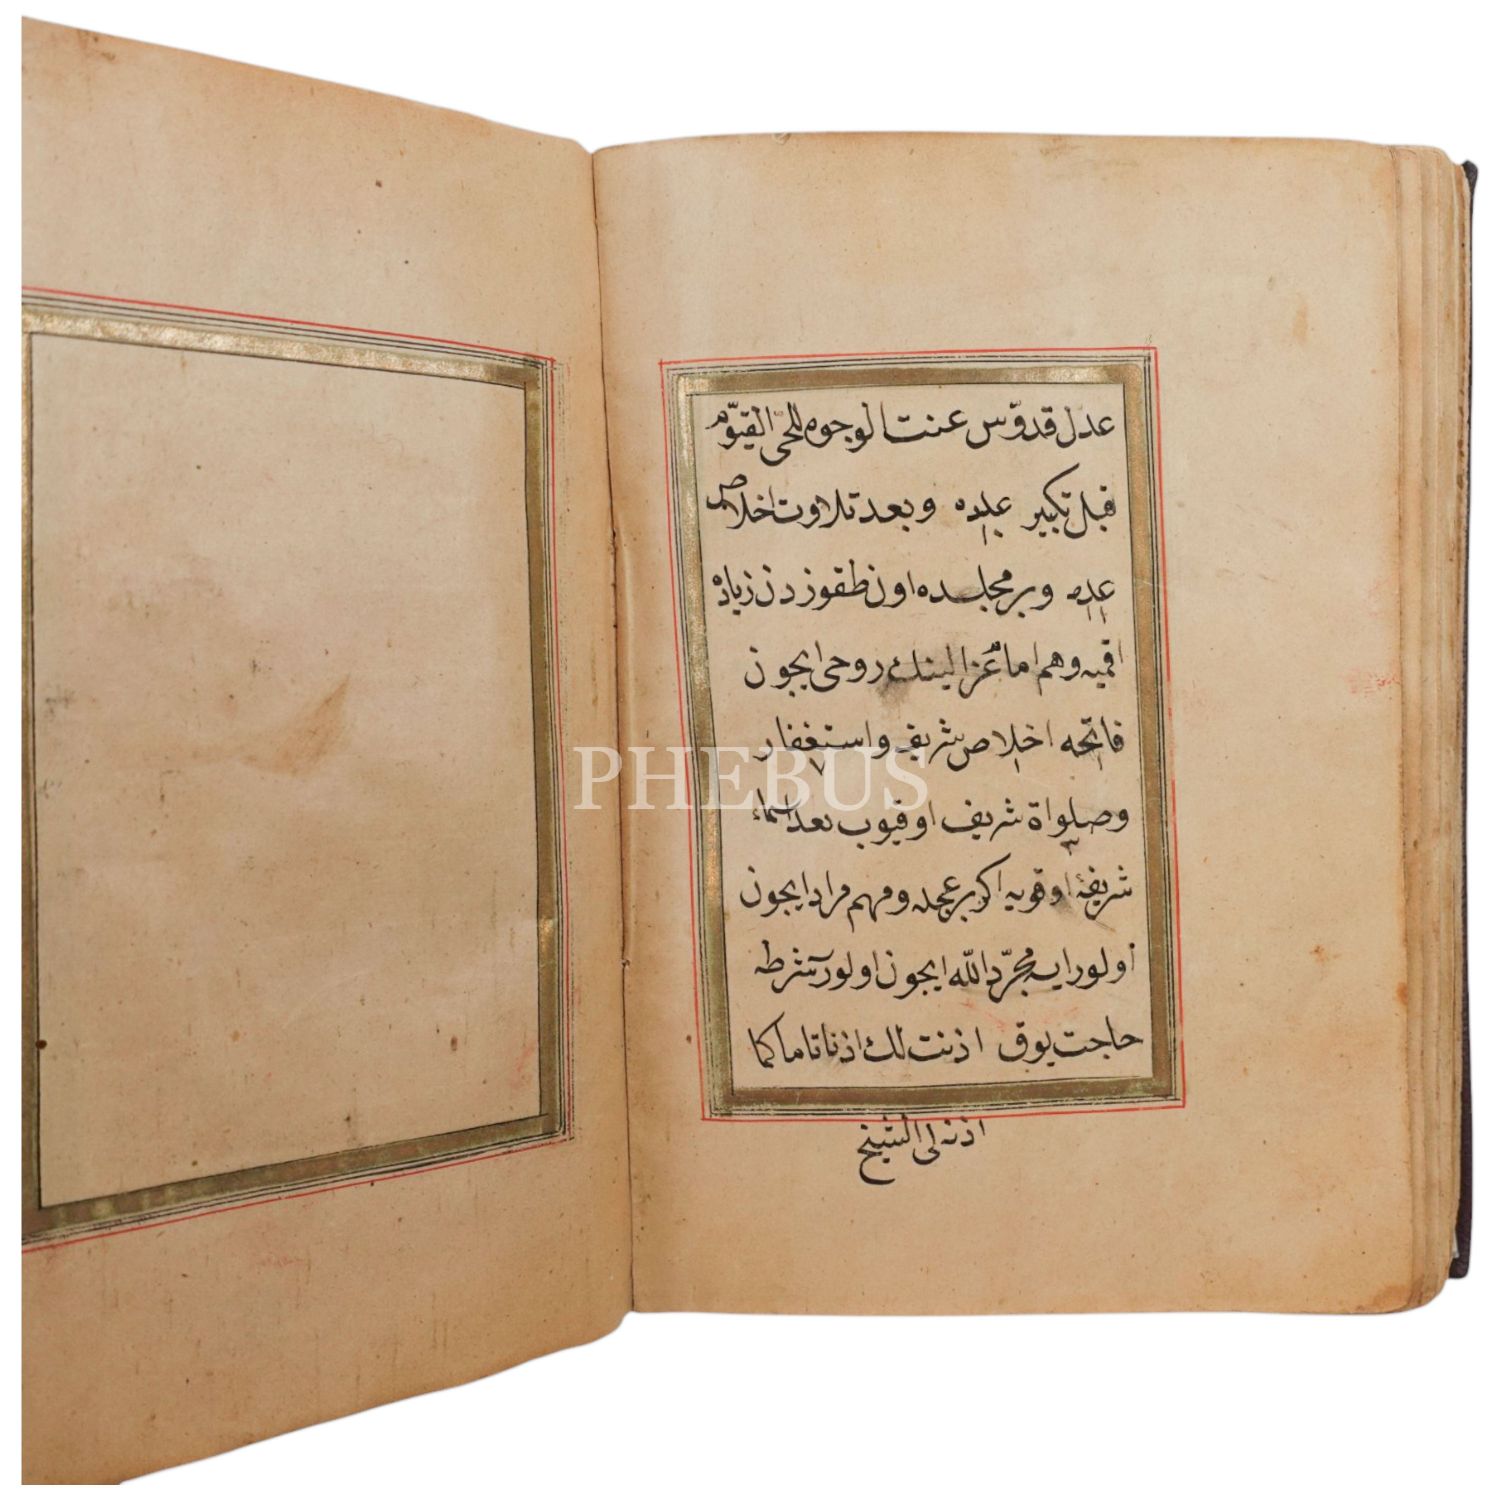 عدل قدوّس عنت الوجوه للحىّ القيّوم
قبل تكبير عدد ١ وبعد تلاوت اخلاص
عدد ١١ وبر مجلسده اون طقوزدن زياده
اقميه وهم امام غزالينك روحى ايچون
فاتحه ١ اخلاص شريف ١ واستغفار ٧
وصلواة شريف ٣ اوقيوب بعد اسماء
شريفۀ اوقويه اكر بر عجله ومهم مراد ايچون
اولور ايسه مجرّد الله ايچون اولور شرطه
حاجت يوق اذنت لك اذنا تاما كما
اذنه لى الشيخ
PHEBUS